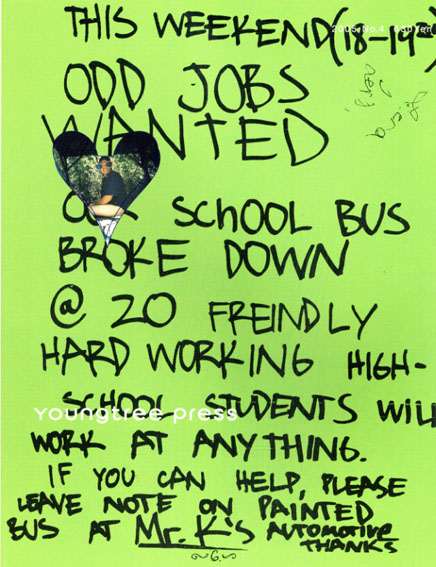 2005 No.4 630Yen
THIS WEEKEND(18-19
ODD JOBS
WANTED
OUR SCHOOL BUS
BROKE DOWN
@ 20 FREINDLY
HARD WORKING HIGH-
SCHOOL STUDENTS WILL
youngtree press
WORK AT ANYTHING.
IF YOU CAN HELP, PLEASE
LEAVE NOTE ON PAINTED
BUS AT Mr. K's AUTOMOTIVE
THANKS